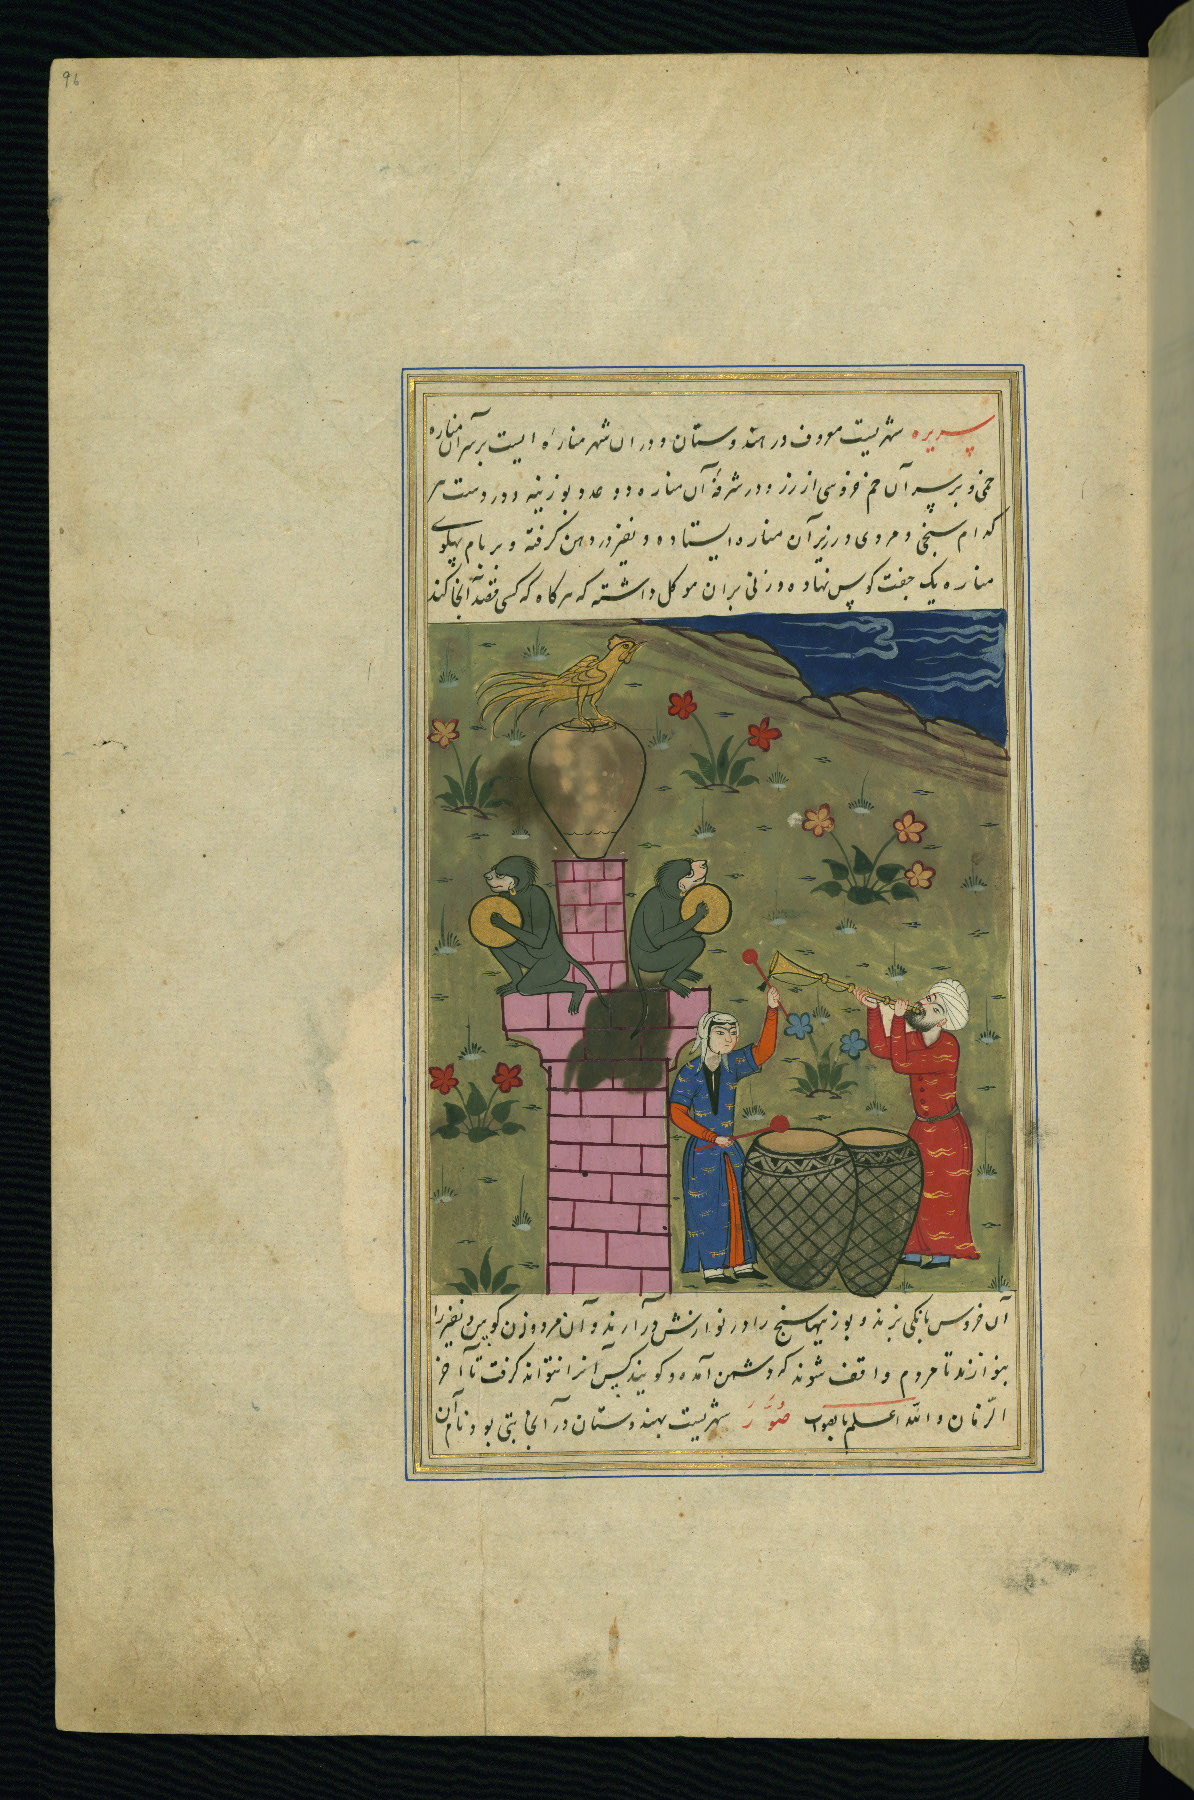 96
سریره شهریست معروف در هندوستان و در ان شهر مناره ایست بر سر آن مناره
خمی و بر سر آن خم خروسی از زر و در شرفهٔ آن مناره دو عدد بوزینه و در دست هر
کدام سنجی و مردی در زیر آن مناره ایستاده و نفیر در دهن گرفته و بر بام پهلوی
مناره یک جفت کوس نهاده و زنی بران موکل داشته که هرکاه که کسی قصد آنجا کند
آن خروس بانکی بزند و بوزینها سنج را در نوازش در آرند و آن مرد و زن کوس و نفیر را
بنوازند تا مردم واقف شوند که دشمن آمده و کویند کس آنرا نتواند کرفت تا آخر
الزمان و الله اعلم بالصواب صُوَر شهریست بهندوستان در آنجا بتی بود نام آن